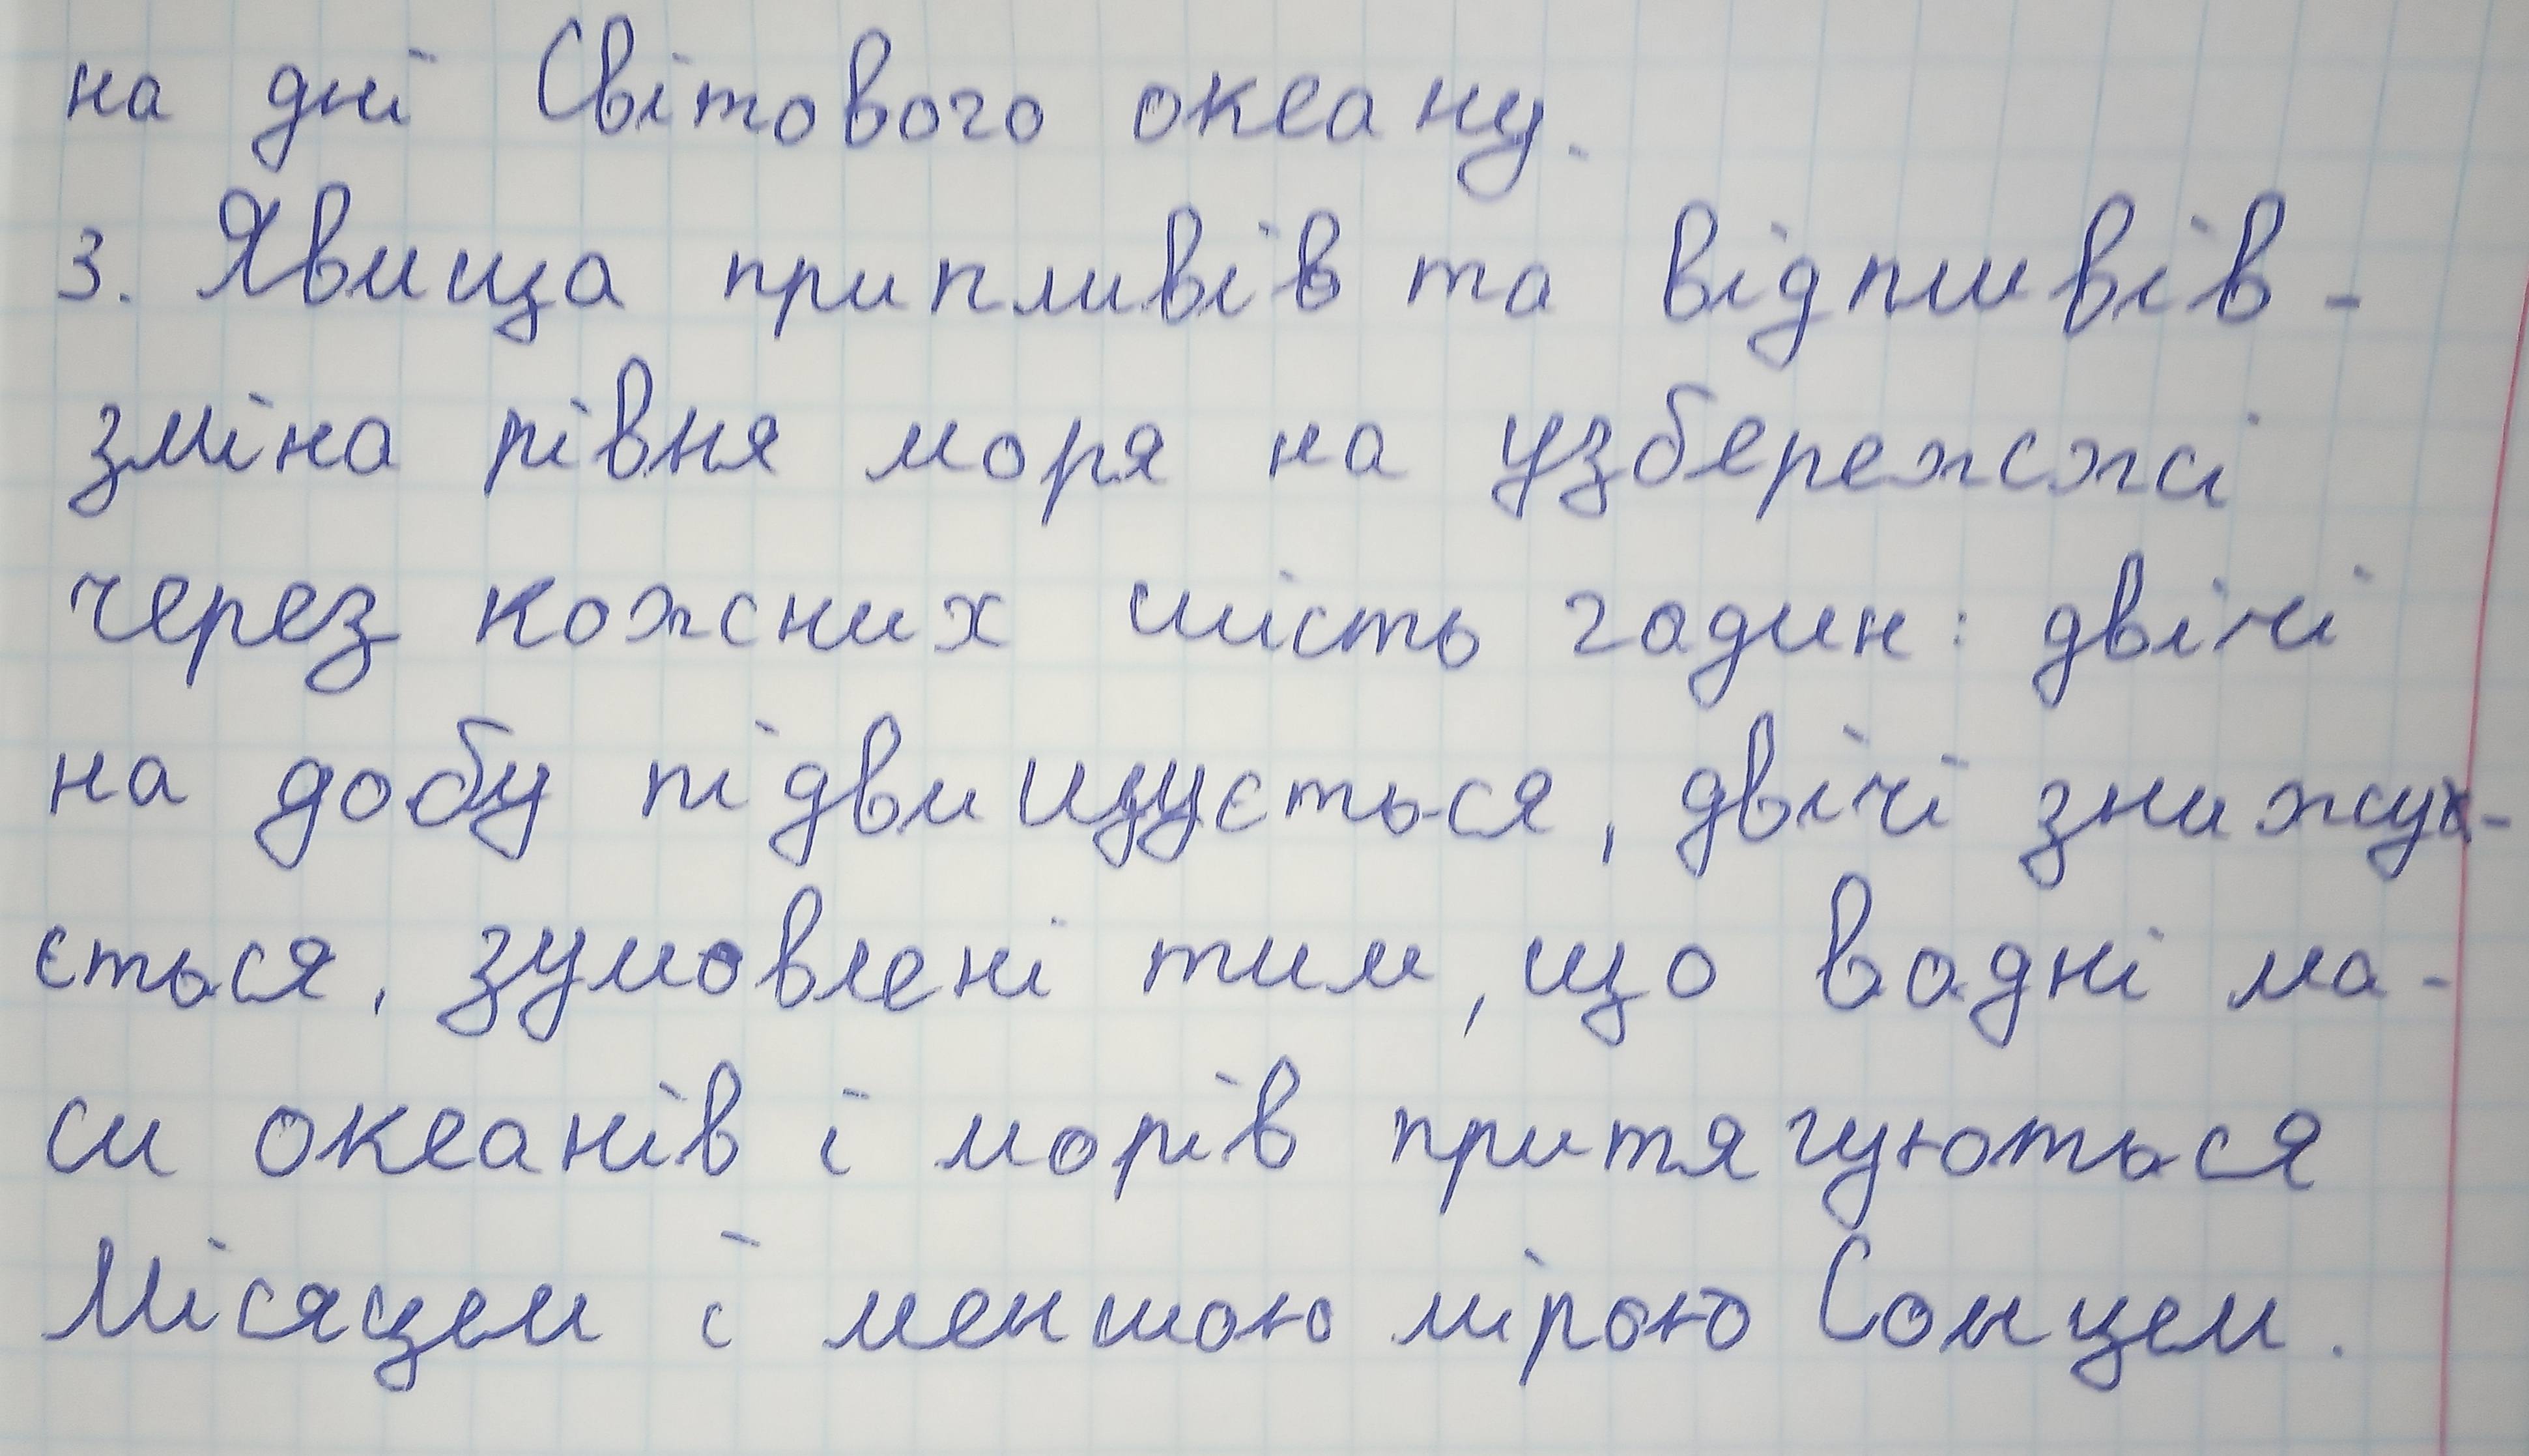 на дні Світового океану.
3. Явища припливів та відпливів -
зміна рівня моря на узбережжі
через кожних шість годин: двічі
на добу підвищується, двічі знижу-
ється, зумовлені тим, що водні ма-
си океанів і морів притягуються
Місяцем і меншою мірою Сонцем.